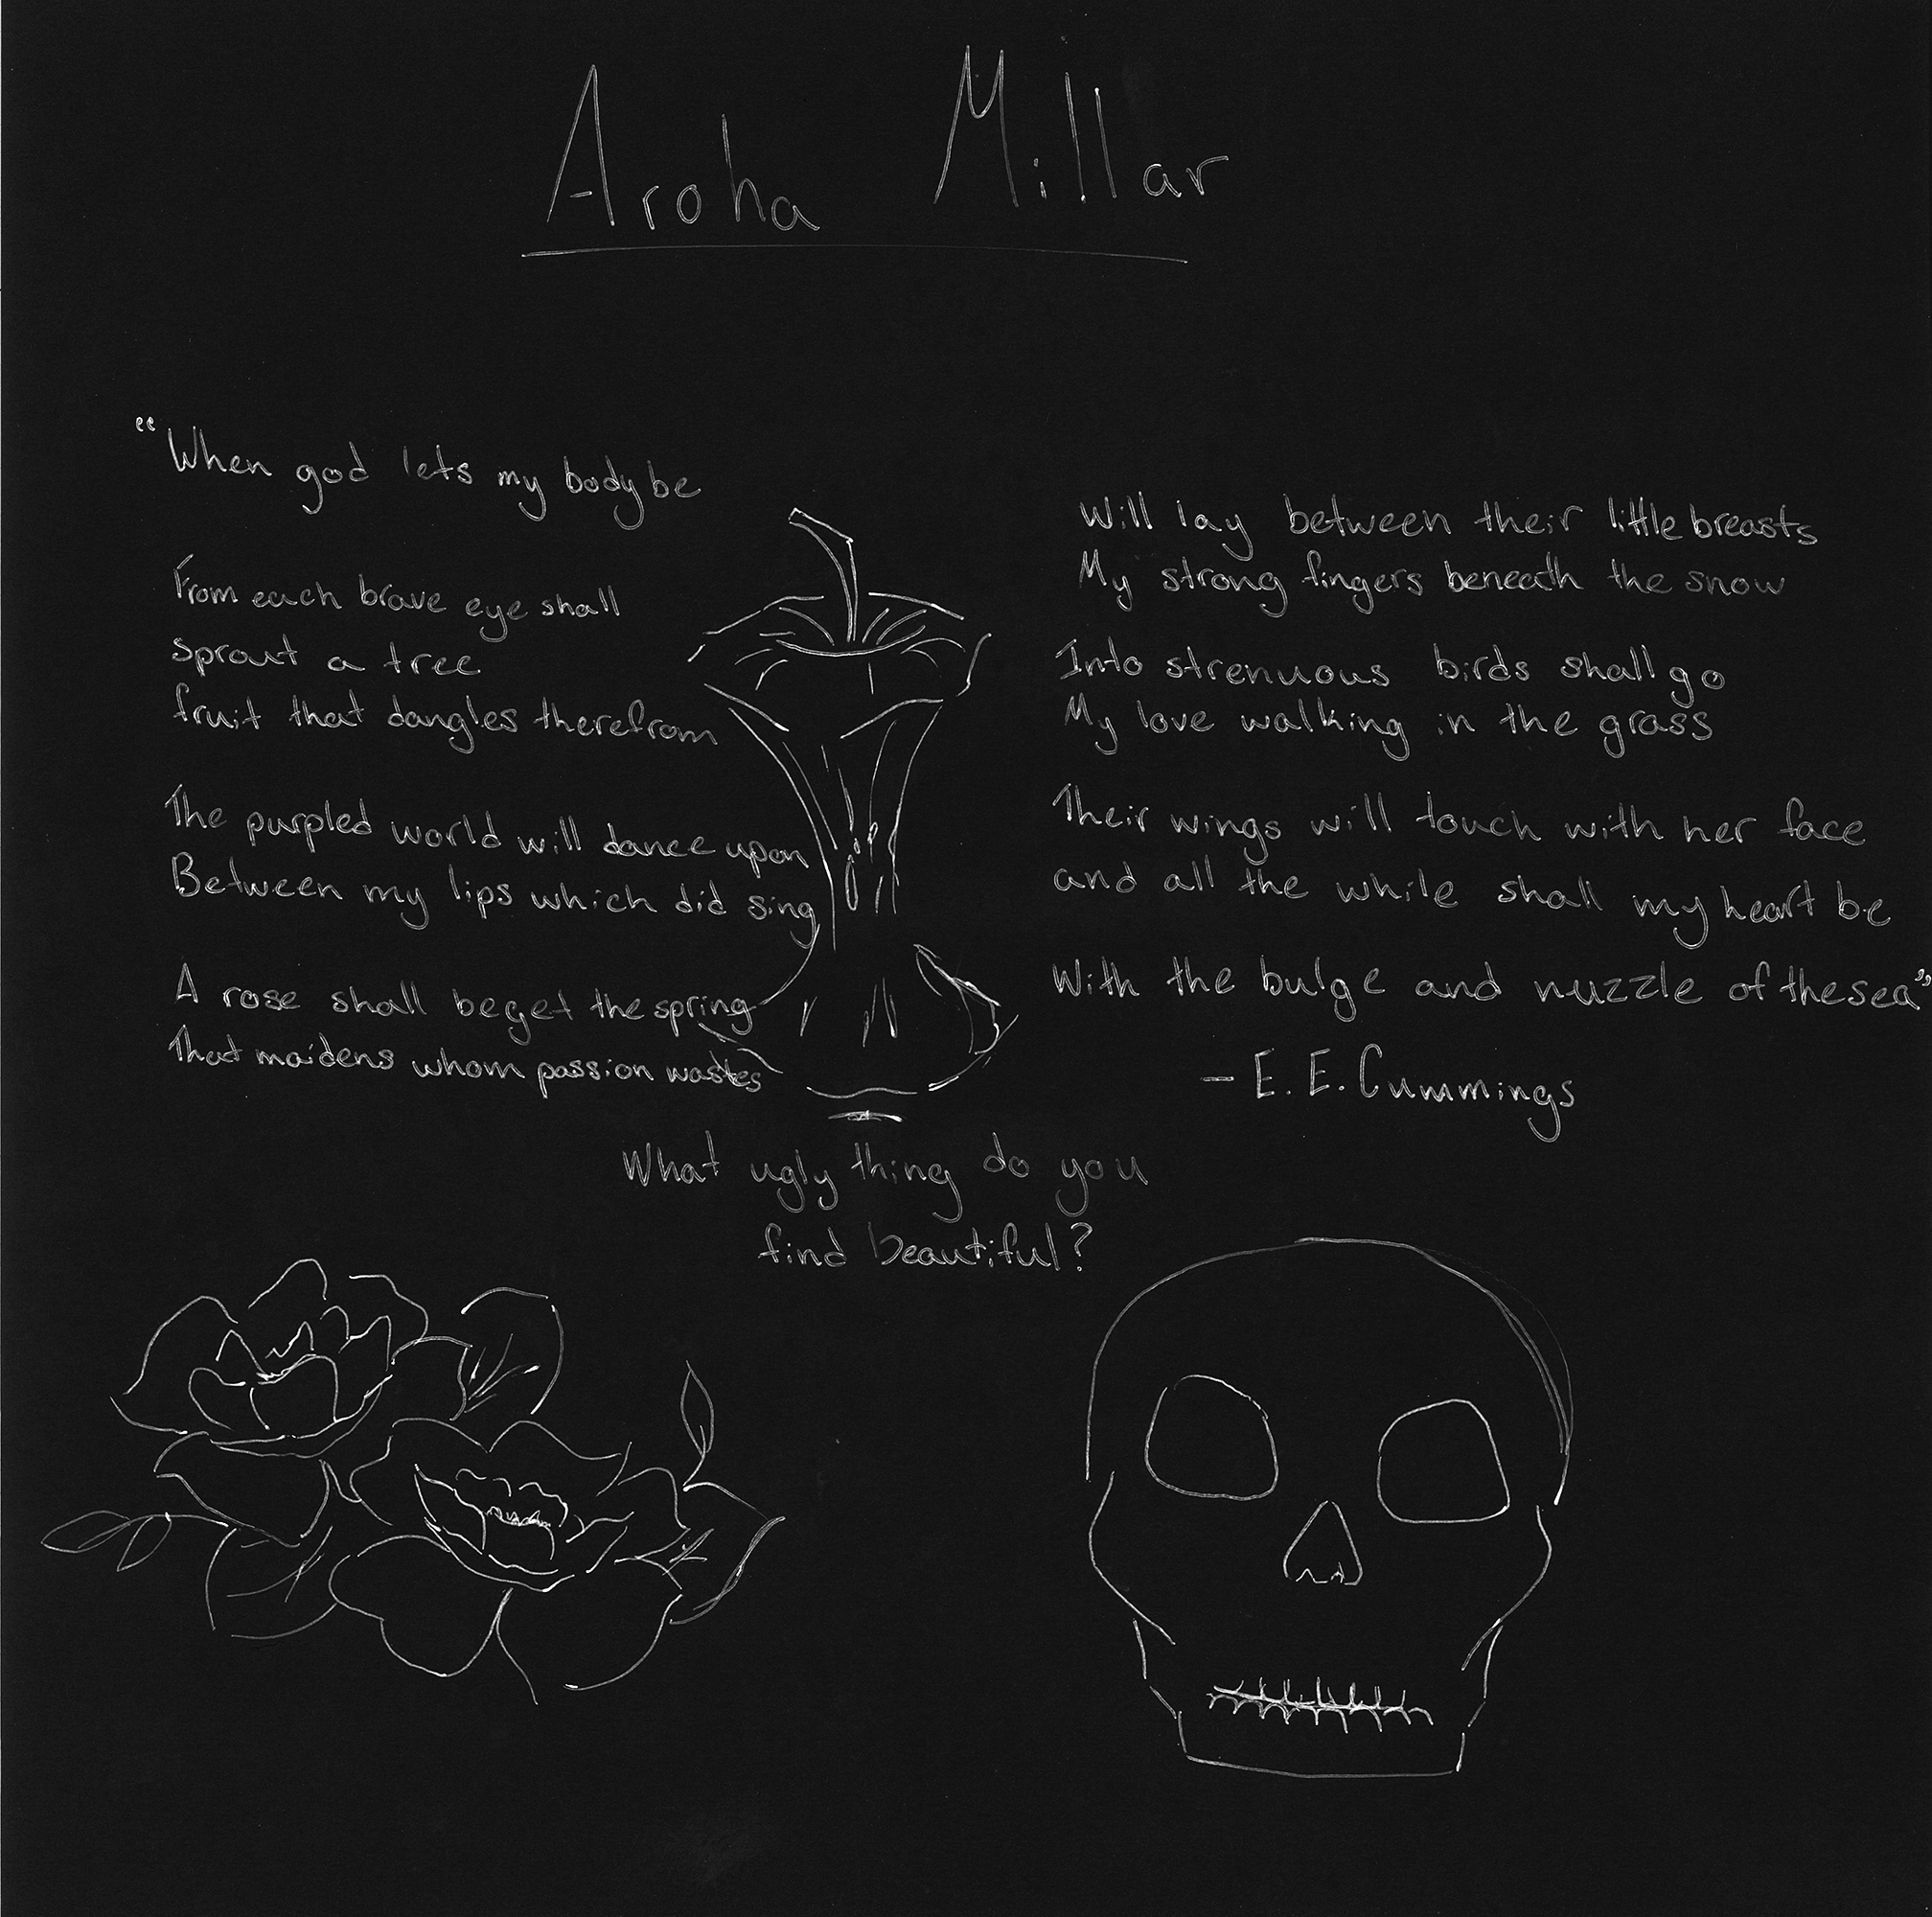 Aroha Millar
"When god lets my body be
From each brave eye shall
sprout a tree
fruit that dangles therefrom
The purpled world will dance upon
Between my lips which did sing
A rose shall beget the spring
That maidens whom passion wastes
Will lay between their little breasts
My strong fingers beneath the snow
Into strenuous birds shall go
My love walking in the grass
Their wings will touch with her face
and all the while shall my heart be
With the bulge and nuzzle of the sea"
- E. E. Cummings
What ugly thing do you
find beautiful?